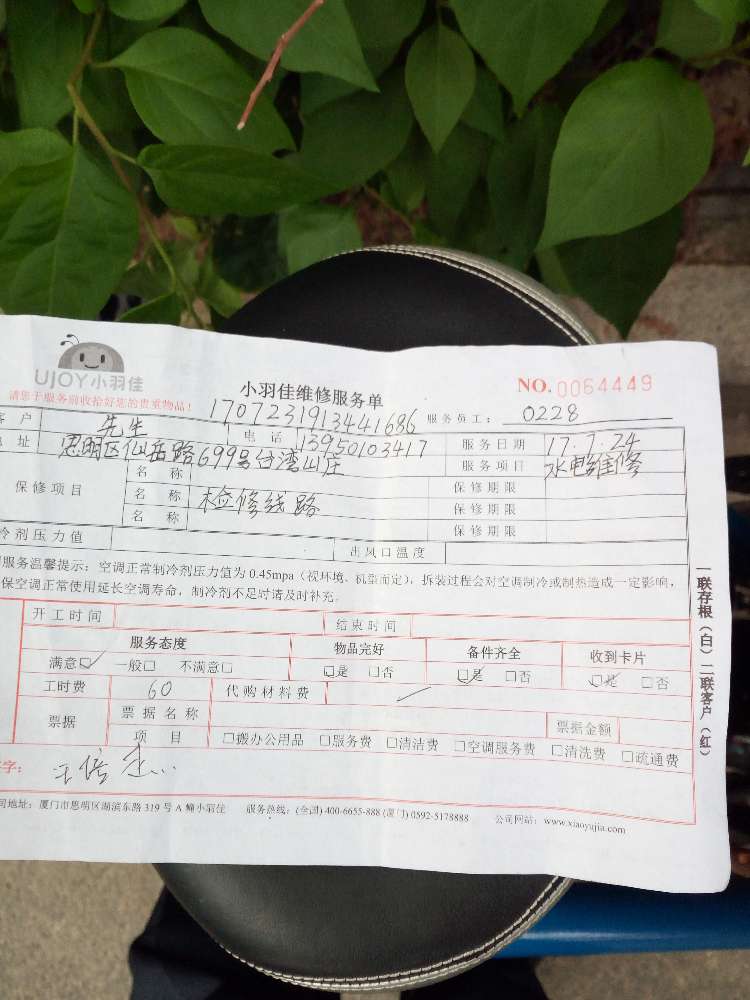 UJOY小羽佳
小羽佳维修服务单
NO.0064449
请您于服务前收拾好您的贵重物品！
1707231913441686
服务员工： 0228
客户 先生 电话 13950103417 服务日期 17.7.24
地址 思明区仙岳路699号台湾山庄 服务项目 水电维修
保修项目 名称 保修期限
名称 检修线路 保修期限
名称 保修期限
冷剂压力值 出风口温度
服务温馨提示：空调正常制冷剂压力值为0.45mpa（视环境、机型而定），拆装过程会对空调制冷或制热造成一定影响，
保空调正常使用延长空调寿命，制冷剂不足时请及时补充。
开工时间 结束时间
服务态度 物品完好 备件齐全 收到卡片
满意☑ 一般□ 不满意□ ☑是 □否 ☑是 □否 ☑是 □否
工时费 60 代购材料费
票据 票据名称 票据金额
项目 □搬办公用品 □服务费 □清洁费 □空调服务费 □清洗费 □疏通费
字：
司地址：厦门市思明区湖滨东路319号A幢小羽佳 服务热线：(全国) 400-6655-888 (厦门) 0592-5178888 公司网站：www.xiaoyujia.com
一联存根（白）二联客户（红）